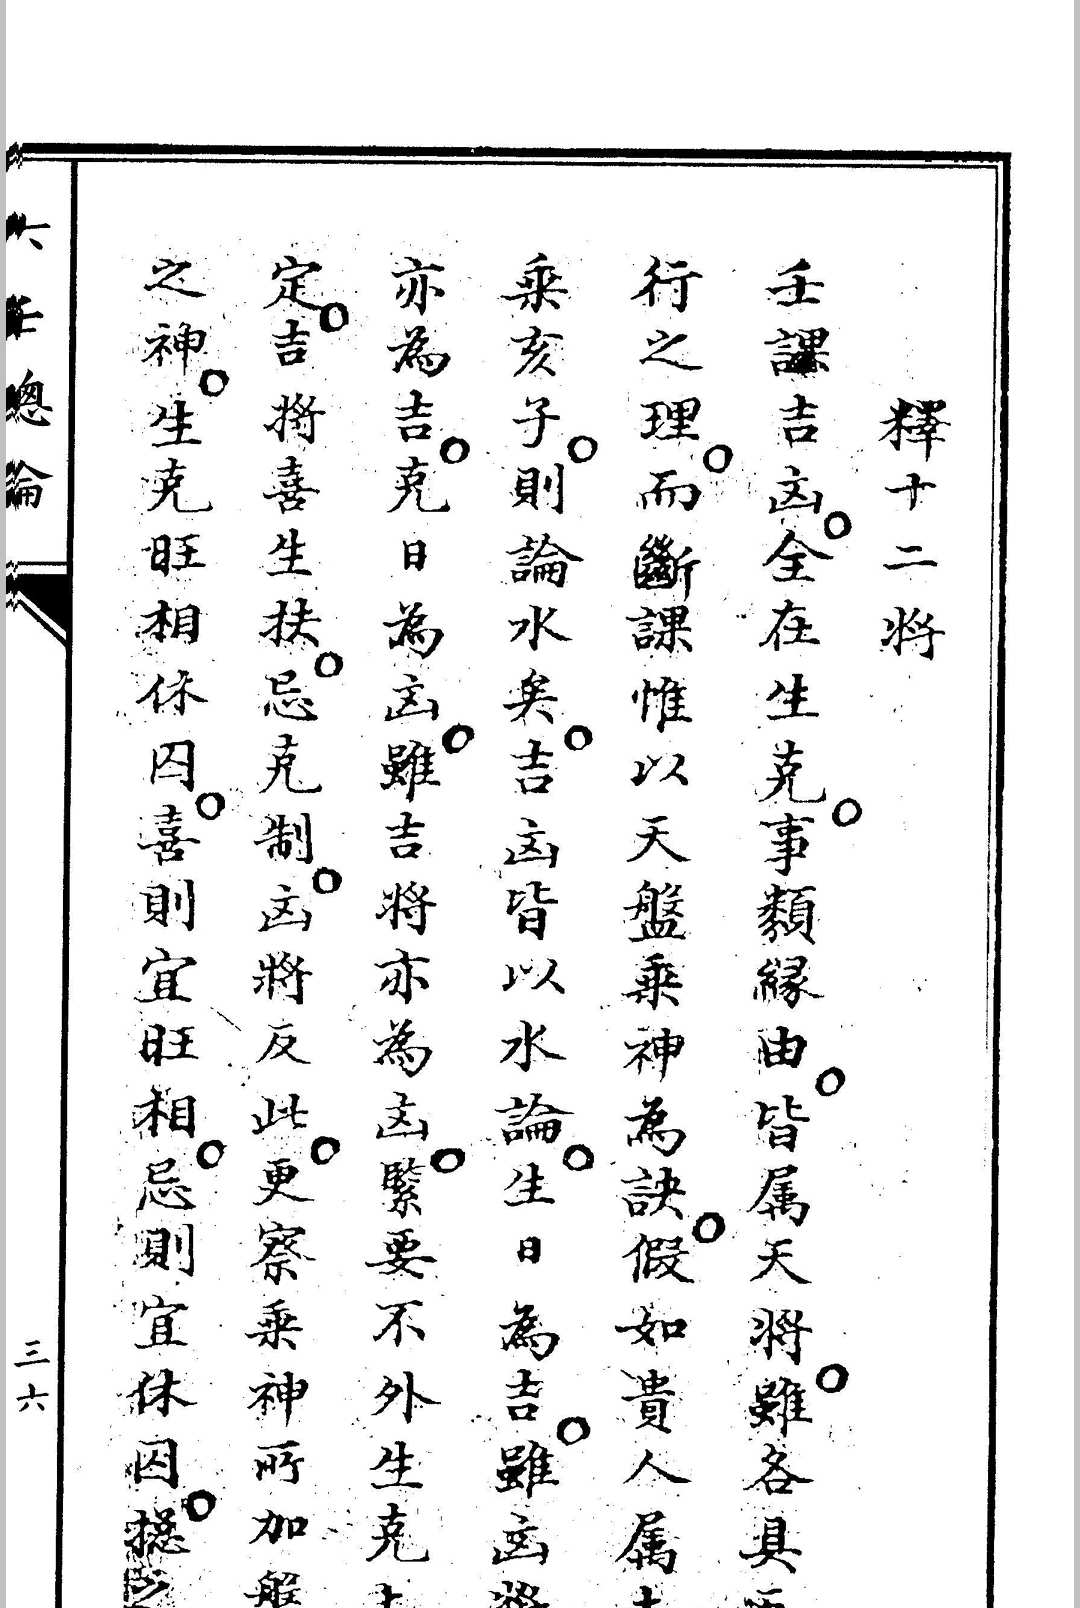 釋十二將
壬課吉凶。全在生克。事類緣由。皆属天將。雖各具
行之理。而斷課惟以天盤乘神為訣。假如貴人属
乘亥子。則論水矣。吉凶皆以水論。生日為吉。雖凶將
亦為吉。克日為凶。雖吉將亦為凶。緊要不外生克
定。吉將喜生扶。忌克制。凶將反此。更察乘神所加盤
之神。生克旺相休囚。喜則宜旺相。忌則宜休囚。摠之
六壬總論
三六